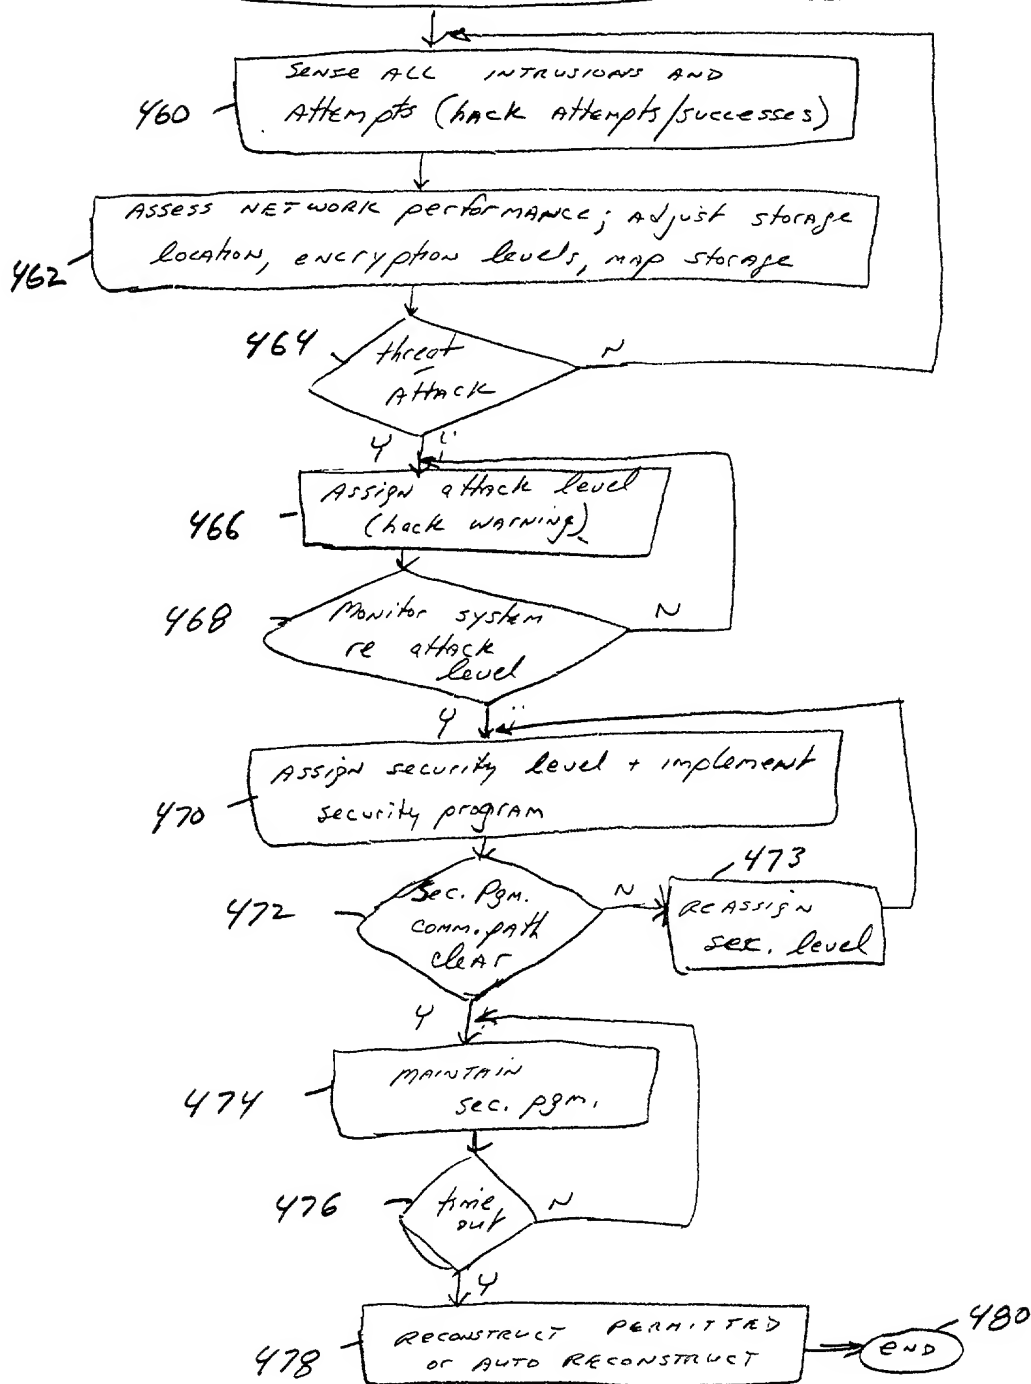 SENSE ALL INTRUSIONS AND
460
Attempts (hack Attempts/successes)
ASSESS NETWORK performance; Adjust storage
462
location, encryption levels, map storage
464
threat
N
ATTACK
Y
Assign attack level
466
(hack warning)
468
Monitor system
N
re attack
level
Y
Assign security level + implement
470
security program
473
472
Sec. Pgm.
N
comm. path
clear
REASSIGN
sec. level
Y
474
MAINTAIN
sec. pgm.
476
time
N
out
Y
478
RECONSTRUCT PERMITTED
or AUTO RECONSTRUCT
END
480